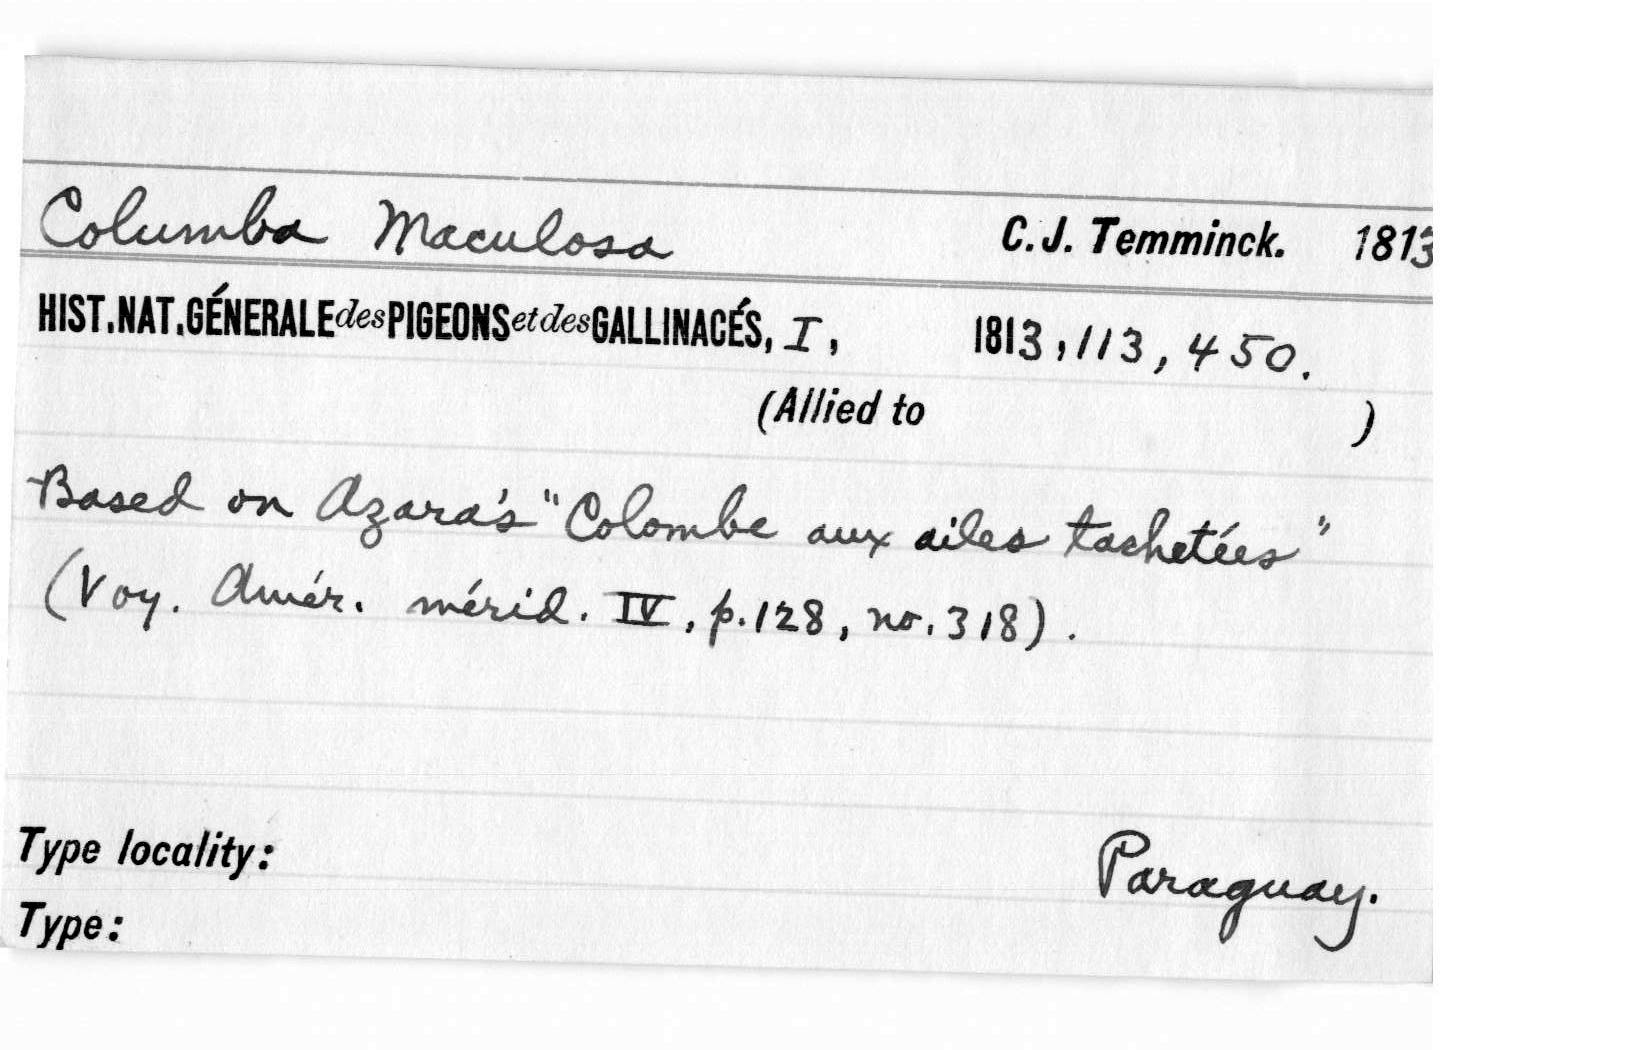 Columba Maculosa C. J. Temminck. 1813
HIST. NAT. GÉNERALE des PIGEONS et des GALLINACÉS, I, 1813, 113, 450.
(Allied to )
Based on Azara's "Colombe aux ailes tachetées"
(Voy. Amér. mérid. IV, p. 128, no. 318).
Type locality: Paraguay.
Type: